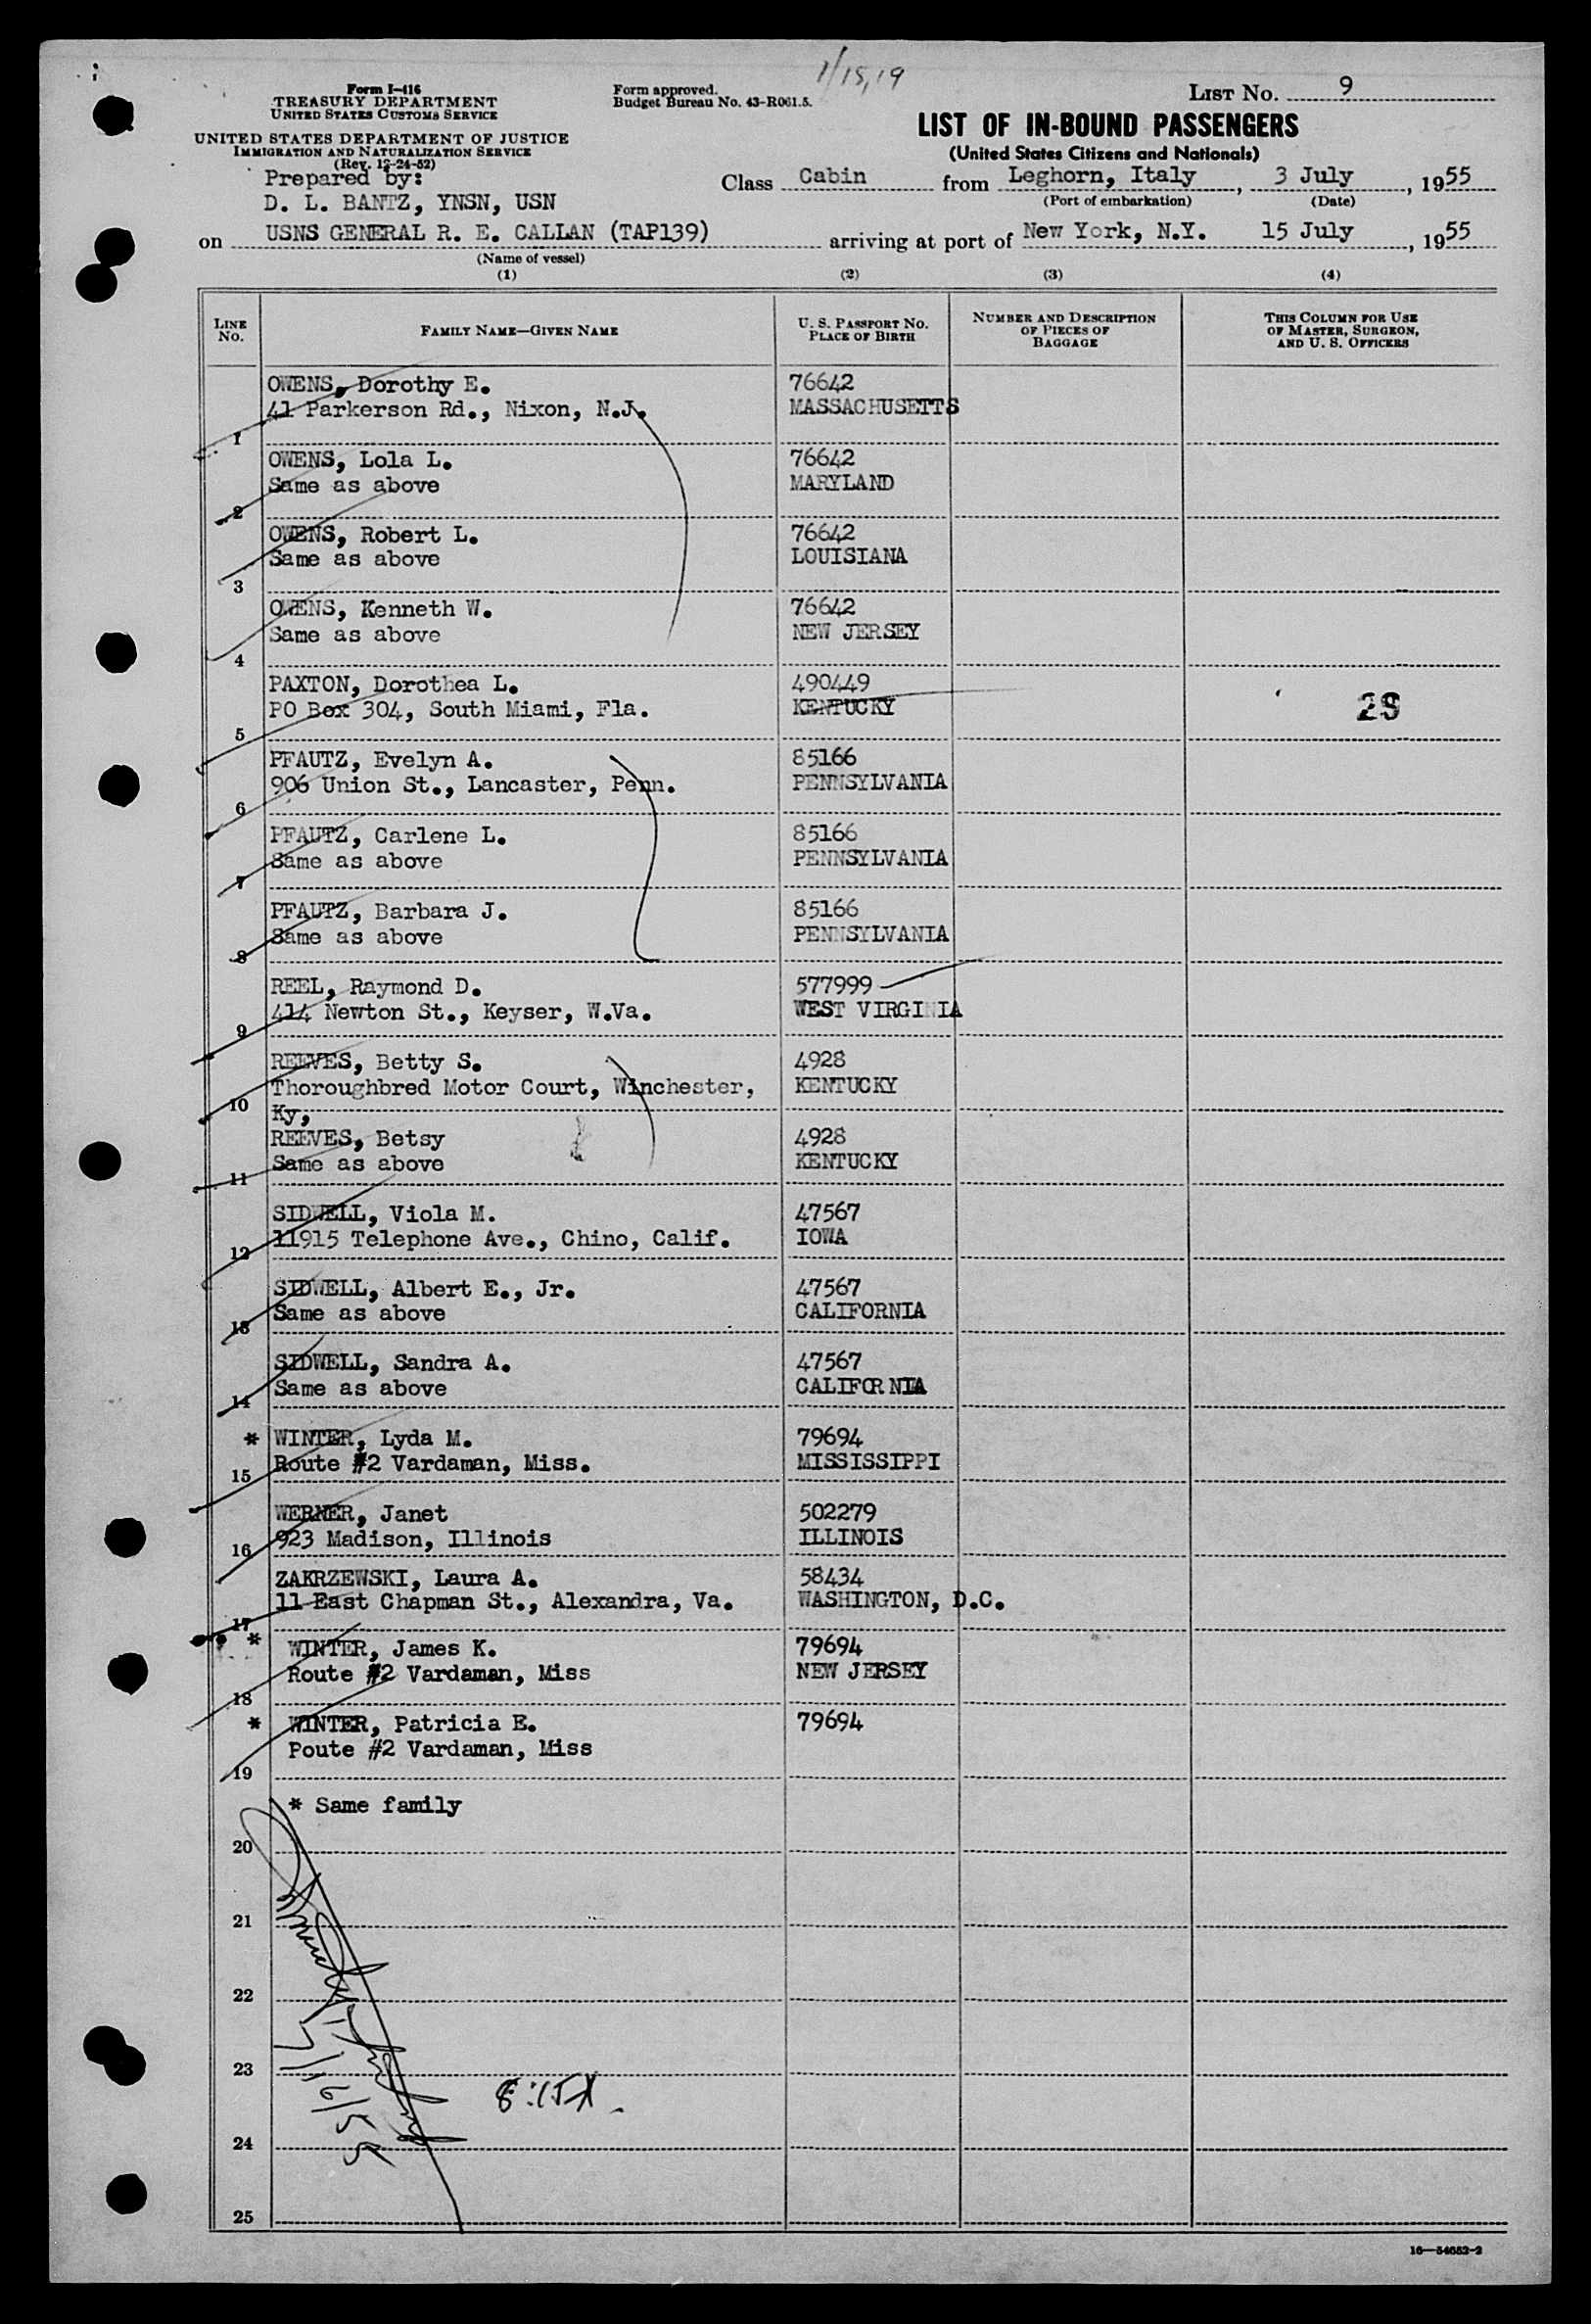 1/15,19
Form I-416
TREASURY DEPARTMENT
UNITED STATES CUSTOMS SERVICE
UNITED STATES DEPARTMENT OF JUSTICE
IMMIGRATION AND NATURALIZATION SERVICE
(Rev. 12-24-52)
Form approved.
Budget Bureau No. 43-R061.5.
LIST No. 9
LIST OF IN-BOUND PASSENGERS
(United States Citizens and Nationals)
Prepared by:
D. L. BANTZ, YNSN, USN
Class Cabin from Leghorn, Italy, 3 July, 1955
(Port of embarkation) (Date)
on USNS GENERAL R. E. CALLAN (TAP139) arriving at port of New York, N.Y. 15 July, 1955
(Name of vessel)
(1) (2) (3) (4)
LINE No. FAMILY NAME—GIVEN NAME U. S. PASSPORT NO. PLACE OF BIRTH NUMBER AND DESCRIPTION OF PIECES OF BAGGAGE THIS COLUMN FOR USE OF MASTER, SURGEON, AND U. S. OFFICERS
OWENS, Dorothy E. 76642
41 Parkerson Rd., Nixon, N.J. MASSACHUSETTS
1
OWENS, Lola L. 76642
Same as above MARYLAND
2
OWENS, Robert L. 76642
Same as above LOUISIANA
3
OWENS, Kenneth W. 76642
Same as above NEW JERSEY
4
PAXTON, Dorothea L. 490449
PO Box 304, South Miami, Fla. KENTUCKY 29
5
PFAUTZ, Evelyn A. 85166
906 Union St., Lancaster, Penn. PENNSYLVANIA
6
PFAUTZ, Carlene L. 85166
Same as above PENNSYLVANIA
7
PFAUTZ, Barbara J. 85166
Same as above PENNSYLVANIA
8
REEL, Raymond D. 577999
414 Newton St., Keyser, W.Va. WEST VIRGINIA
9
REEVES, Betty S. 4928
Thoroughbred Motor Court, Winchester, KENTUCKY
10 Ky,
REEVES, Betsy 4928
Same as above KENTUCKY
11
SIDWELL, Viola M. 47567
11915 Telephone Ave., Chino, Calif. IOWA
12
SIDWELL, Albert E., Jr. 47567
Same as above CALIFORNIA
13
SIDWELL, Sandra A. 47567
Same as above CALIFORNIA
14
* WINTER, Lyda M. 79694
Route #2 Vardaman, Miss. MISSISSIPPI
15
WERNER, Janet 502279
923 Madison, Illinois ILLINOIS
16
ZAKRZEWSKI, Laura A. 58434
11 East Chapman St., Alexandra, Va. WASHINGTON, D.C.
17
* WINTER, James K. 79694
Route #2 Vardaman, Miss NEW JERSEY
18
* WINTER, Patricia E. 79694
Poute #2 Vardaman, Miss
19
* Same family
20
21
22
23
7/16/55
24
25
16—54652-2